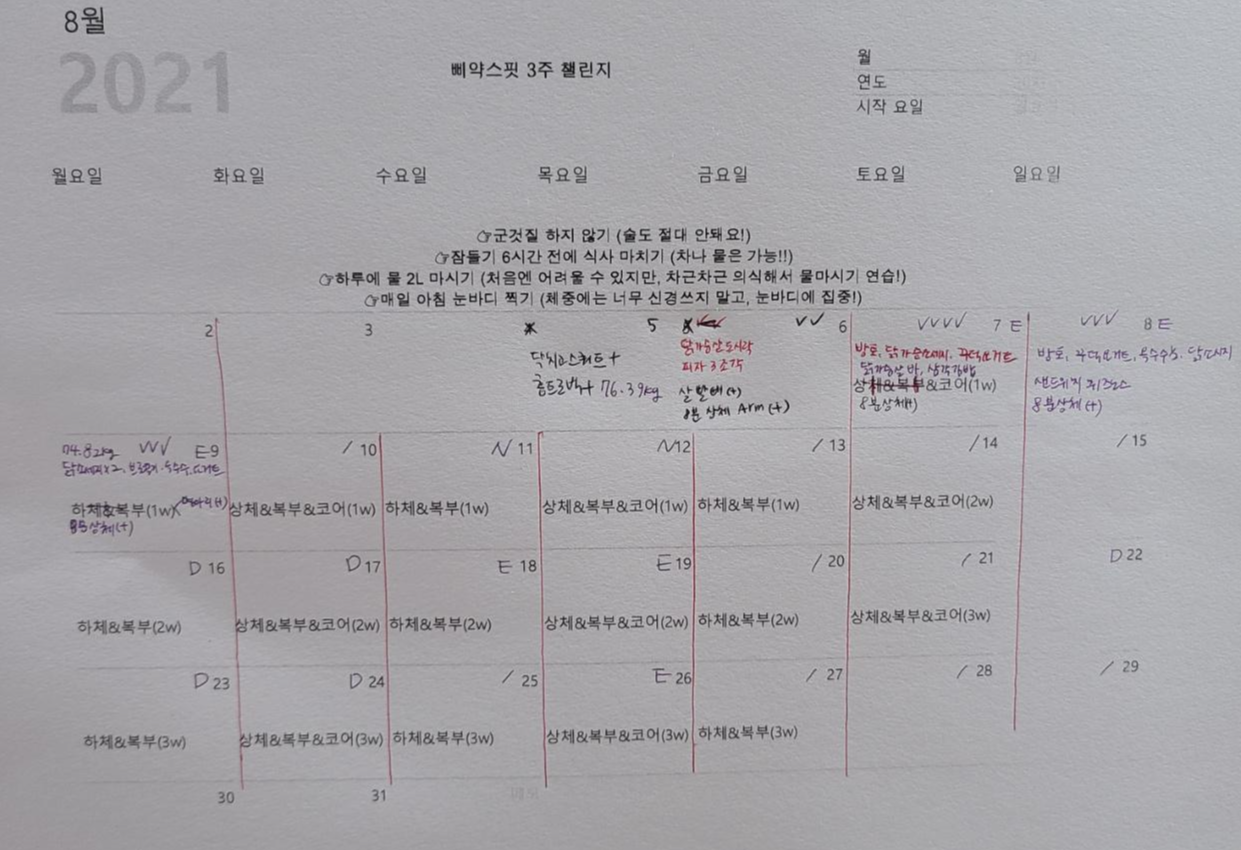 8월
2021
삐약스핏 3주 챌린지
월
연도
시작 요일
월요일 화요일 수요일 목요일 금요일 토요일 일요일
☞군것질 하지 않기 (술도 절대 안돼요!)
☞잠들기 6시간 전에 식사 마치기 (차나 물은 가능!!)
☞하루에 물 2L 마시기 (처음엔 어려울 수 있지만, 차근차근 의식해서 물마시기 연습!)
☞매일 아침 눈바디 찍기 (체중에는 너무 신경쓰지 말고, 눈바디에 집중!)
2 3 5 6 7 E 8 E
닭가슴살도시락
피자 3조각
76.39kg
8분 상체 Arm (+)
상체&복부&코어(1w)
8분상체(+)
샌드위치
8분상체 (+)
74.82kg E9 / 10 N 11 N12 / 13 / 14 / 15
하체&복부(1w) 상체&복부&코어(1w) 하체&복부(1w) 상체&복부&코어(1w) 하체&복부(1w) 상체&복부&코어(2w)
상체(+)
D 16 D 17 E 18 E 19 / 20 / 21 D 22
하체&복부(2w) 상체&복부&코어(2w) 하체&복부(2w) 상체&복부&코어(2w) 하체&복부(2w) 상체&복부&코어(3w)
D 23 D 24 / 25 E 26 / 27 / 28 / 29
하체&복부(3w) 상체&복부&코어(3w) 하체&복부(3w) 상체&복부&코어(3w) 하체&복부(3w)
30 31